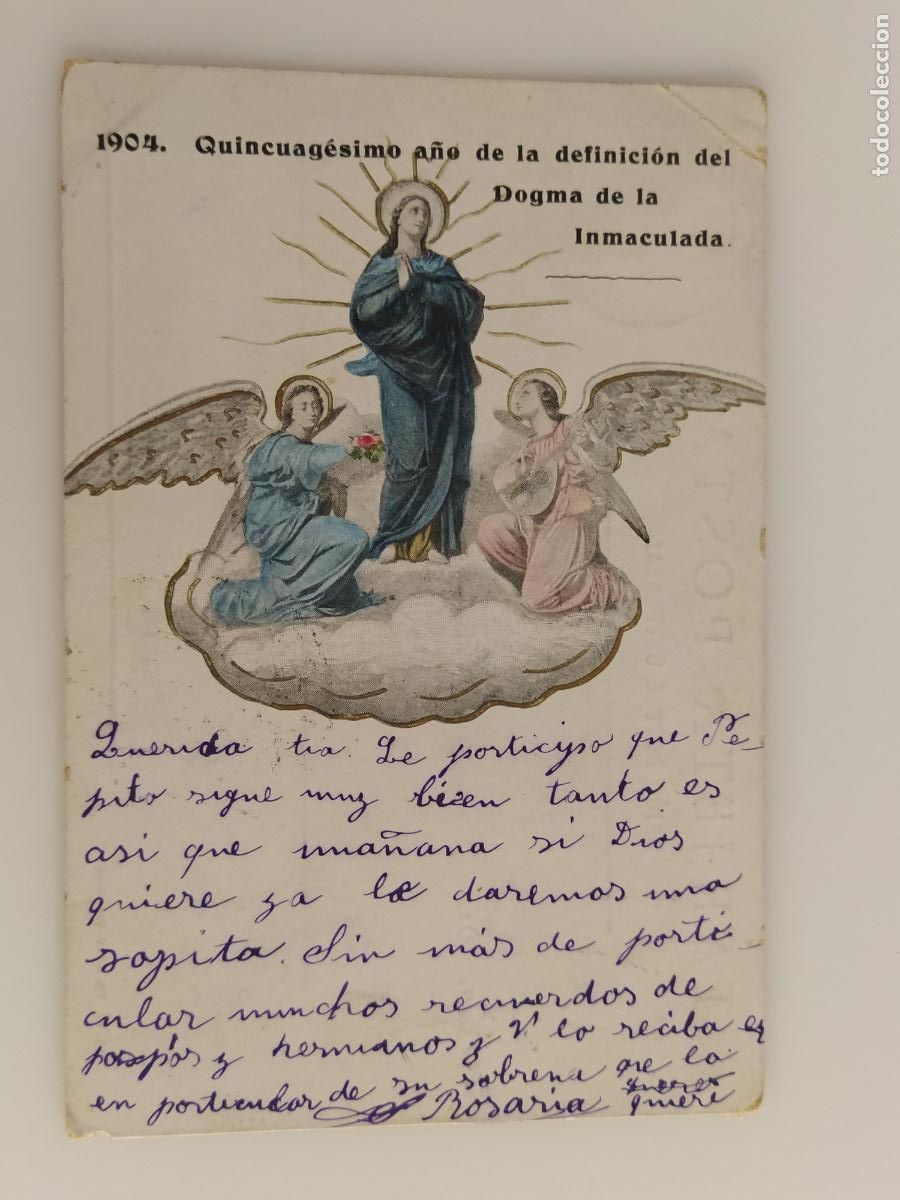 1904. Quincuagésimo año de la definición del
Dogma de la
Inmaculada.
Querida tia. Le porticipo que Pe-
pito sigue muy bien tanto es
asi que mañana si Dios
quiere ya le daremos una
sopita. Sin más de porti-
cular munchos recuerdos de
papás y hermanos y V lo reciba
en porticular de su sobrena que la
quiere
Rosaria
todocoleccion